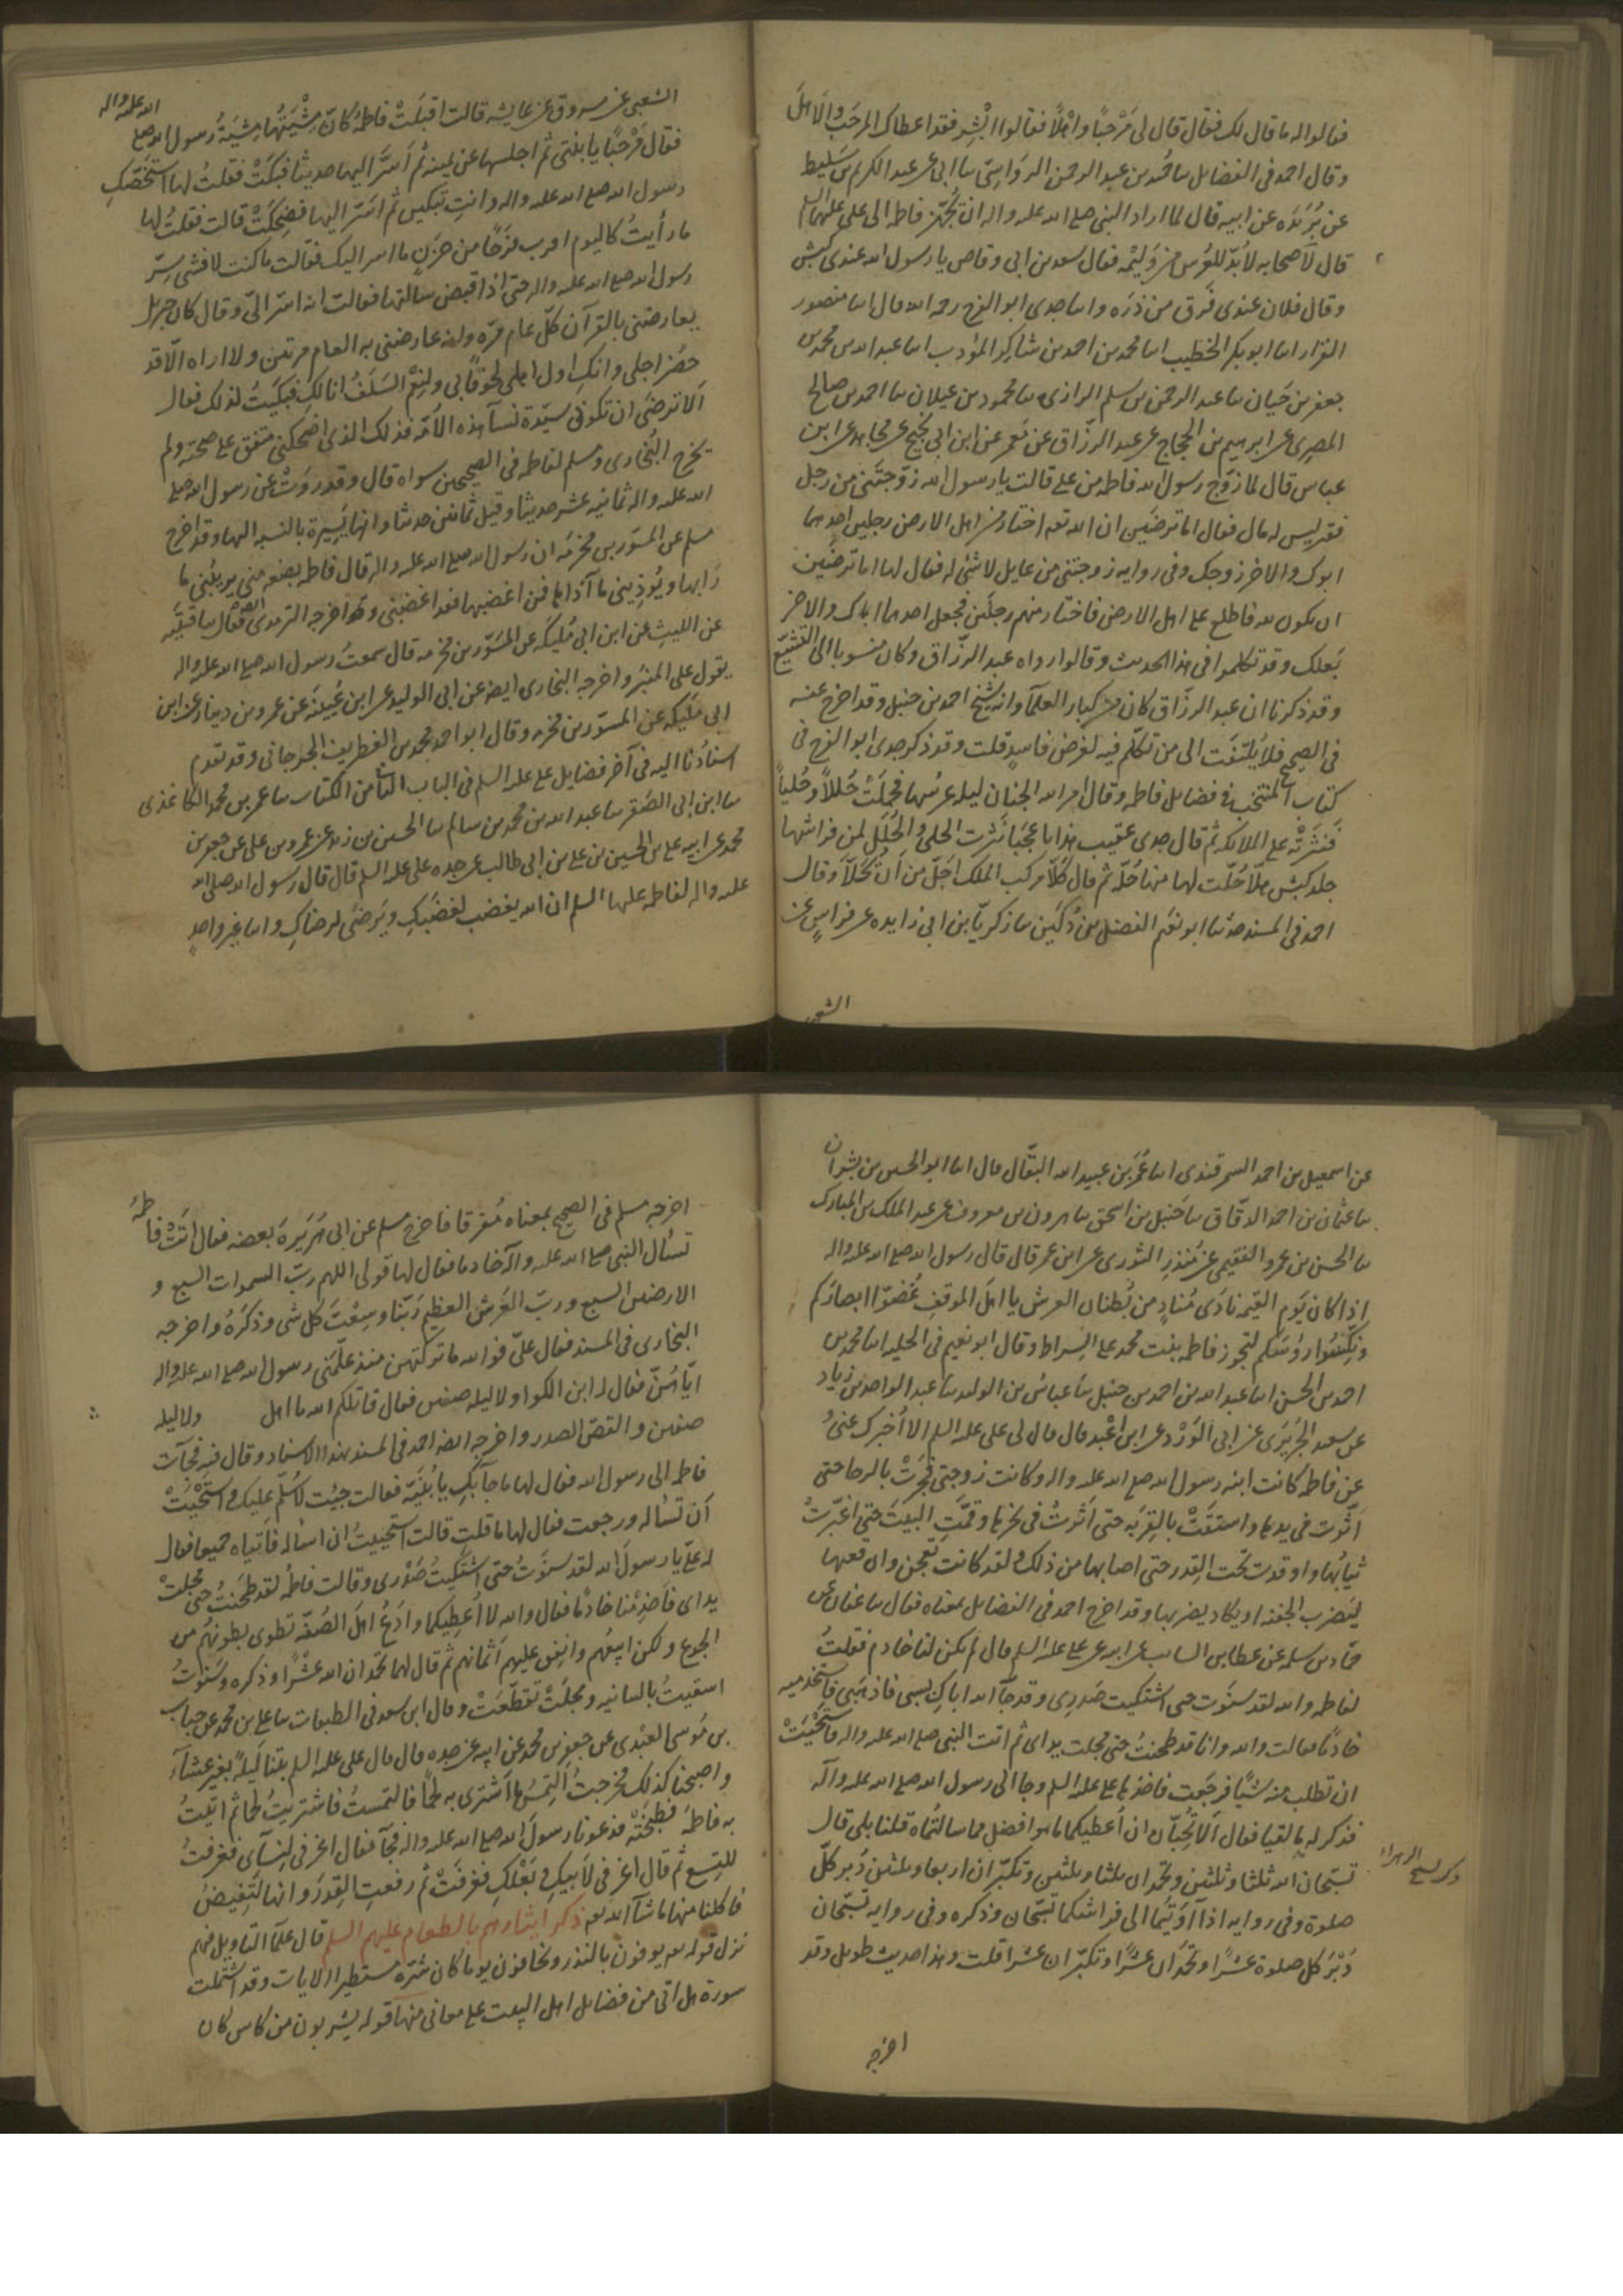 فقالوا له ما قال لك فقال قال لى مَرْحَبًا واهْلًا فقالوا ابْشِر فقد اعطاك المرحَبَ والاهلَ
وقال احمد فى الفضايل سا حُميد بن عبد الرحمن الروَاسِىّ سا ابى عن عبد الكريم بن سَليط
عن بُرَيدَه عن ابيه قال لما اراد النبى صلى الله عليه واله ان يُجَهّز فاطمه الى على عليهما السلم
قال لاصحابه لا بُدّ للعُرس من وَليْمه فقال سعد بن ابى وقاص يا رسول الله عندى كبش
وقال فلان عندى فَرَق من ذرَه واسا جدى ابو الفرج رحمه الله قال اسا منصور
القزاز اسا ابو بكر الخطيب اسا محمد بن احمد بن شاكر المؤدب اسا عبد الله بن محمد بن
جعفر بن حَيان سا عبد الرحمن بن سلم الرازى سا محمود بن غيلان سا احمد بن صالح
المصرى عن ابرهيم بن الحجاج عن عبد الرزّاق عن مَعمر عن ابن ابى نجيح عن مجاهد عن ابن
عباس قال لما زوّج رسول الله فاطمه من على قالت يا رسول الله زوّجتَنى من رجل
فقير ليس له مال فقال اما ترضَين ان الله تعه اختار من اهل الارض رجلين احدهما
ابوك والاخر زوجك وفى روايه زوجتنى من عايل لا شئ له فقال لها اما ترضَين
ان يكون لله فاطلع على اهل الارض فاختار منهم رجلَين فجعل احدهما اباك والاخر
بَعلك وقد تكلموا فى هذا الحديث وقالوا رواه عبد الرزّاق وكان منسوبا الى التشيّع
وقد ذكرنا ان عبد الرزّاق كان من كبار العلمآ وانه شيخ احمد بن حنبل وقد اخرج عنه
فى الصحيح فلا يُلتفَت الى من تكلّم فيه لغرض فاسدٍ قلت وقد ذكر جدى ابو الفرج فى
كتاب المنتخب فى فضايل فاطمه وقال امر الله الجنان ليله عرُسها فحمَلتْ حُللاً وحُلياً
فَنثَرتْه على الملائكه ثم قال جدى عقيب هذا يا عجَبا نثرت الحلى والحُلَل لمن فراشها
جلد كبش هلّا حُلّت لها منها حُلّه ثم قال كلّا مركب الملك اجَلّ من ان يُحَلّا وقال
احمد فى المسند حدثنا ابو نعَيم الفضل بن دُكَين سا زكريّا بن ابى زايده عن فراسٍ عن
الشعبى
الشعبى عن مسروق عن عايشه قالت اقبلَتْ فاطمَهُ كانّ مِشْيَتُها مِشيَةُ رسول الله صلى الله عليه واله
فقال مَرْحَبًا يا بنتى ثم اجلسها عن يمينه ثم اَسَرّ اليها حديثا فبكَتْ فقلتُ لها استَخَصّكِ
رسول الله صلى الله عليه واله وانتِ تبكين ثم اسَرّ اليها فضحكَتْ قالت فقلتُ لها
ما رأيتُ كاليوم اقرب فرَحًا من حزنٍ ما اسر اليك فقالت ما كنت لافشى سِرّ
رسول الله صلى الله عليه واله حتى اذا قبض سالتها فقالت انه اسَرّ الىّ وقال كان جبريل
يعارضنى بالقرآن كلّ عام مرّه وانه عارضنى به العام مرتين ولا اراه الّا قد
حضَر اجلى وانكِ اول اهلى لحوقًا بى ولنِعْمَ السَلَفُ انا لكِ فبَكَيْتُ لذلك فقال
اَلا ترضَى ان تكونى سَيّدة نسآ هذه الامّه فذلك الذى اضحكنى متفق على صحته ولم
يخرج البُخارى ومسلم لفاطمه فى الصحيحين سواه قال وقد روَتْ عن رسول الله صلى
الله عليه واله ثمانيه عشر حديثا وقيل ثمانين حديثا وانها يَسِيرة بالنسبه اليها وقد اخرج
مسلم عن المسوَر بن مخرمَه ان رسول الله صلى الله عليه واله قال فاطمه بضعه منى يريبُنى ما
رَابها ويُوذينى ما آذاها فمن اغضبها فقد اغضبنى وقد اخرجه الترمذى فقال سا قتيبَه
عن الليث عن ابن ابى مُليكه عن المسَوّر بن مخرمه قال سمعتُ رسول الله صلى الله عليه واله
يقول على المنبَر واخرجه البخارى ايضه عن ابى الوليد عن ابن عُيينَه عن عمرو بن دينار عن ابن
ابى مُلَيكه عن المسوّر بن مخرمه وقال ابو احمد محمد بن الغطريف الجرجانى وقد تقدم
اسنادُنا اليه فى آخر فضايل على عليه السلم فى الباب الثامن الكتاب سا عمر بن محمد الكاغذى
سا ابن ابى الصَقر سا عبد الله بن محمد بن سالم سا الحسين بن زيد عن عمرو بن على عن جعفر بن
محمد عن ابيه على بن الحسين بن على بن ابى طالب عن جده على عليه السلم قال قال رسول الله صلى الله
عليه واله لفاطمه عليها السلم ان الله يغضب لغضَبِكِ ويَرضَى لرضاكِ واسا غير واحدٍ
عن اسمعيل بن احمد السمرقندى اسا عُمَر بن عبيد الله البقّال قال اسا ابو الحسين بن بشران
سا عثمان بن احمد الدقّاق سا حَنبل بن اسحق سا هرون بن معروف عن عبد الملك بن المبارك
سا الحسن بن عمرو الفقيمى عن مُنذِر الثورى عن ابن عمر قال قال رسول الله صلى الله عليه واله
اذا كان يَوم القيمه نادَى مُنادٍ من بُطنان العرش يا اهلَ الموقفِ غُضّوا ابصارَكم
ونَكِّسُوا رؤسَكم لتجوز فاطمه بنت محمد على السِراط وقال ابو نعيم فى الحليه اسا محمد بن
احمد بن الحسن اسا عبد الله بن احمد بن حنبل سا عباس بن الوليد سا عبد الواحد بن زياد
عن سعيد الجُرَيرَى عن ابى الوَرْد عن ابن اعْبد قال قال لى على عليه السلم الا اُخبرك عنى و
عن فاطمه كانت ابنه رسول الله صلى الله عليه واله وكانت زوجتى فجَرَتْ بالرحا حتى
اَثّرت فى يدها واستقَتْ بالقِربَه حتى اَثرتْ فى نحرها وقَمّتِ البيتَ حتى اغبّرتْ
ثيابُها واوقدت تحت القِدر حتى اصابها من ذلك ولقد كانت تعجن وان قعبها
ليَضرب الجفنه او يكاد يضربها وقد اخرج احمد فى الفضايل بمعناه فقال سا عفان عن
حمّاد بن سلمه عن عطا بن السايب عن ابيه عن على عليه السلم قال لم يكن لنا خادم فقلتُ
لفاطمه والله لقد سنَوت حتى اشتكيت صَدرِى وقد جآ الله اباكِ بسبى فاذهَبى فاستَخدميه
خادمًا فقالت والله وانا قد طحنتُ حتى مجلت يداى ثم اتت النبى صلى الله عليه واله فاستَحْيَتْ
ان تطلب منه شيًا فرجَعت فاخذها على عليه السلم وجا الى رسول الله صلى الله عليه وآله
فذكر له ما لقيا فقال اَلا تُحِبّان ان اُعطيكما ما هو افضل مما سالتُماه قلنا بلى قال
تسبّحان الله ثلثا وثلثين وتحمدان ثلثا وثلثين وتكبّران اربعا وثلثين دُبر كلّ
صلوة وفى روايه اذا آوَيْتُما الى فراشكما تسبّحان وذكره وفى روايه تسبّحان
دُبْرَ كل صلوة عشْرًا وتحمَدان عشرًا وتكبّران عشرا قلت وهذا حديث طويل وقد
اخرجه
اخرجه مسلم فى الصحيح بمعناه مُفرقا فاخرج مسلم عن ابى هُرَيرَة بعضه فقال اتَتْ فاطمةُ
تسأل النبى صلى الله عليه وآله خادما فقال لها قولى اللهم ربّ السموات السبع و
الارضين السبع وربّ العَرش العظيم رَبّنا وسِعْتَ كل شى وذكَرَهُ واخرجه
البخارى فى المسند فقال علىّ فوالله ما تركتهن منذ علّمَنى رسول الله صلى الله عليه واله
ايّاهُنّ فقال له ابن الكوا ولا ليله صفين فقال قاتلكم الله يا اهل ولا ليله
صفين والتقىّ الصدر واخرجه ايضه احمد فى المسند بهذا الاسناد وقال فيه فجآت
فاطمه الى رسول الله فقال لها ما جآبكِ يا بُنَيّه فقالت جيئت لاُسَلّم عليك واستَحْيَتْ
اَن تسأله ورجعت فقال لها ما قلتِ قالت استحييتُ ان اسأله فاَتياه جميعا فقال
له علىّ يا رسولَ الله لقد سنَوتُ حتى اشتكيتُ صَدْرى وقالت فاطمهُ لقد طحَنتُ حتى مجلتْ
يداى فَاَخدِمْنا خادمًا فقال والله لا اُعطيكما واَدَعُ اهلَ الصُفّه تطوى بطونهم من
الجوع ولكن ابيعُهم وانفِق عليهم اَثمانهم ثم قال لهما تحمدان الله عشْرًا وذكره وسَنَوتُ
استقيتُ بالسانيه ومجلَتْ تقطّعَتْ وقال ابن سعد فى الطبقات سا على بن محمد عن حباب
بن مُوسى العبْدى عن جعفر بن محمد عن ابيه عن جده قال قال على عليه السلم بتنا لَيلةً بغير عشآء
واصبحنا كذلك فخرجتُ اَلتمِسُ ما اَشترى به لحمًا فالتمستُ فاشتريتُ لحما ثم اتيتُ
به فاطمَه فطبَخَتْه فدعونا رسولَ الله صلى الله عليه واله فجآ فقال اغرفى لِنسآى فغَرفتُ
للتِسع ثم قال اغرفى لاَبيكِ وبَعْلكِ فغرفَتْ ثم رفعتِ القِدرَ وانها لتَفِيضُ
فاكلنا منها ما شآ الله تعه ذكر ايثارهم بالطعام عليهم السلم قال علمآ التاويل فيهم
نزل قوله تعه يوفون بالنذر ويخافون يوما كان شرّه مستطيرا الايات وقد اشتملت
سورة هل اتى من فضايل اهل البيت على معانى منها قوله يشربون من كاس كان